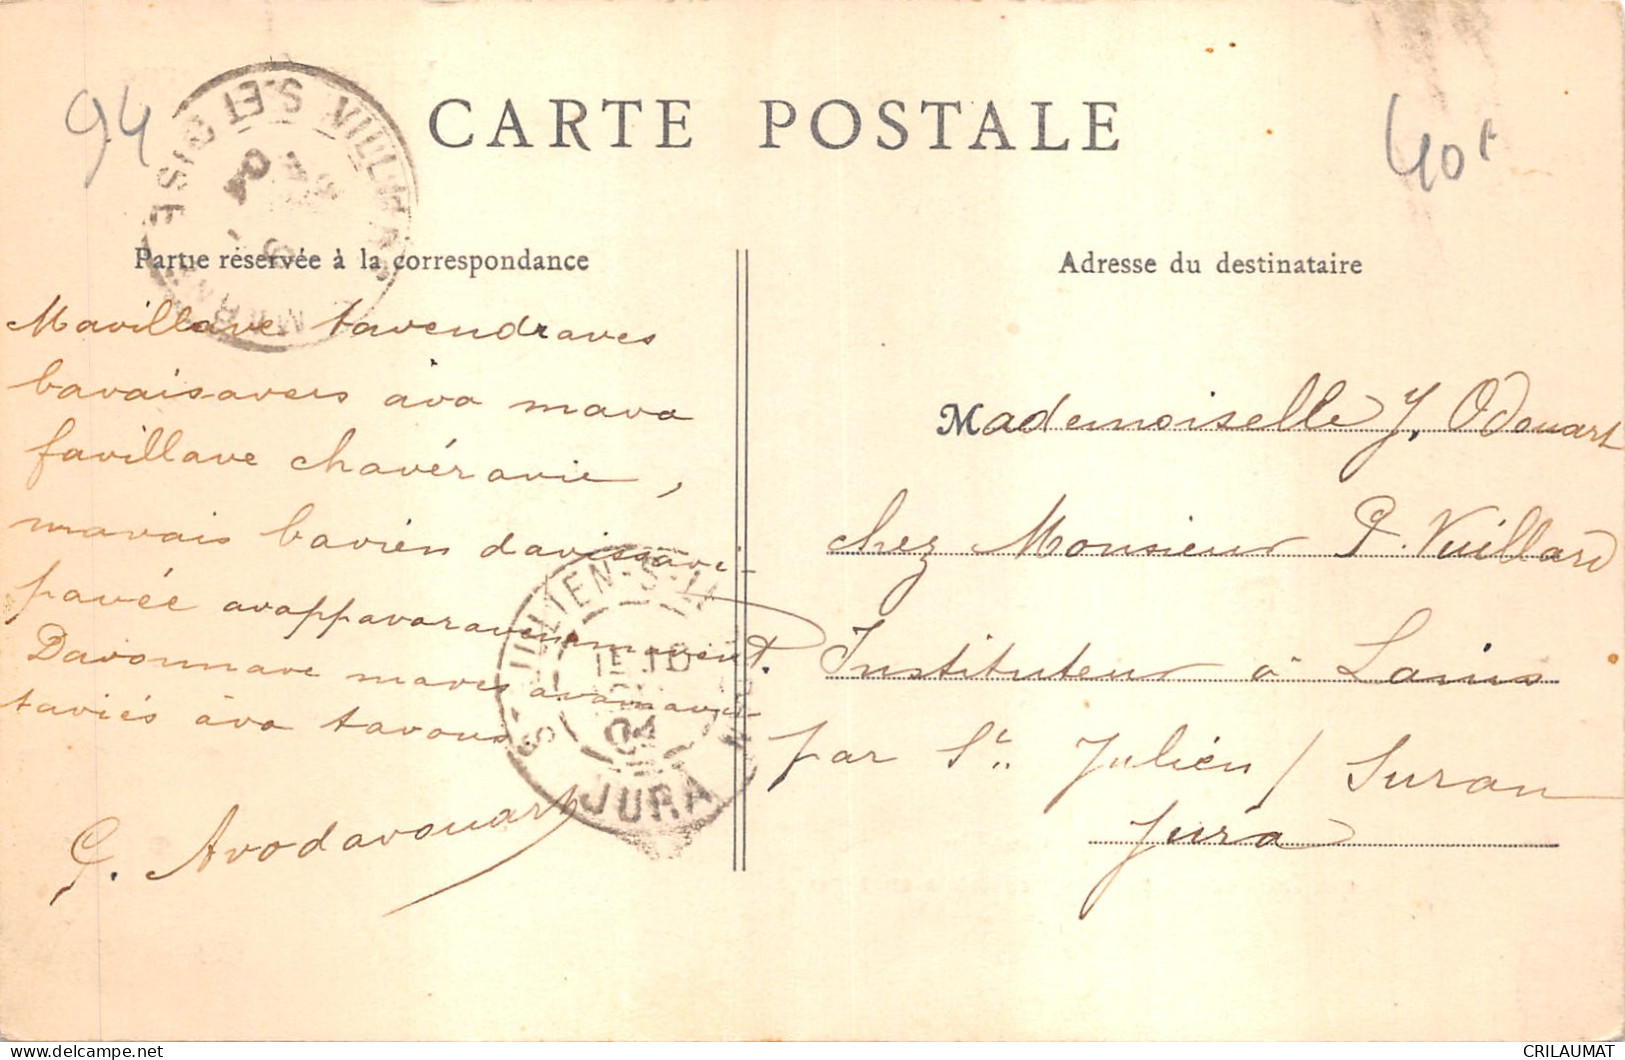 94
CARTE POSTALE
40f
Partie réservée à la correspondance
Adresse du destinataire
Mavillave tavendraves
bavaisavers ava mava
favillave chavéravie,
mavais bavien davissavi-
pavée avappavaravenmmavent.
Davonnave maves avamavi-
taviés àva tavous
G. Avodavouart
Mademoiselle J. Odouart
chez Monsieur P. Vuillard
Instituteur à Lains
par St. Julien / Suran
Jura
VILLIERS
S. ET OISE
04
S-JULIEN-S-
04
JURA
CRILAUMAT